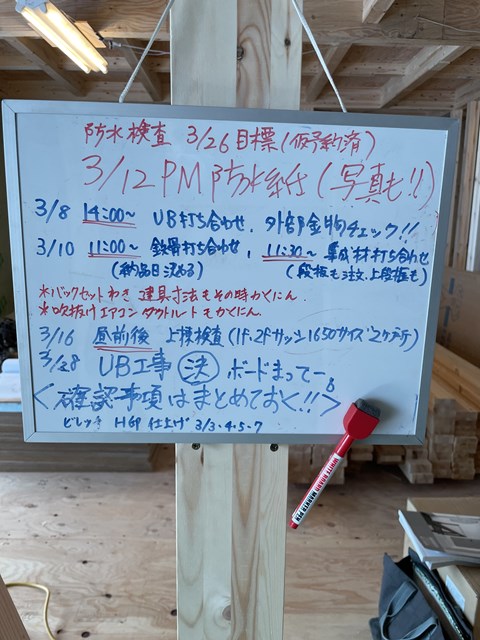 防水検査 3/26目標(仮予約済)
3/12 PM 防水紙(写真も!!)
3/8 14:00~ UB打ち合わせ、外部金物チェック!!
3/10 11:00~ 鉄骨打ち合わせ、11:30~ 集成材打ち合わせ
(納品日決める) (段板も注文、上段框も)
*バックセットわき 建具寸法もその時かくにん
*吹抜けエアコンダクトルートもかくにん.
3/16 昼前後 上棟検査(1F.2Fサッシ1650サイズ2ケ所)
3/28 UB工事 決 ボードまってー。
<確認事項はまとめておく!!>
HGP 仕上げ 3/3・4・5・7
WHITE BOARD MARKER PEN